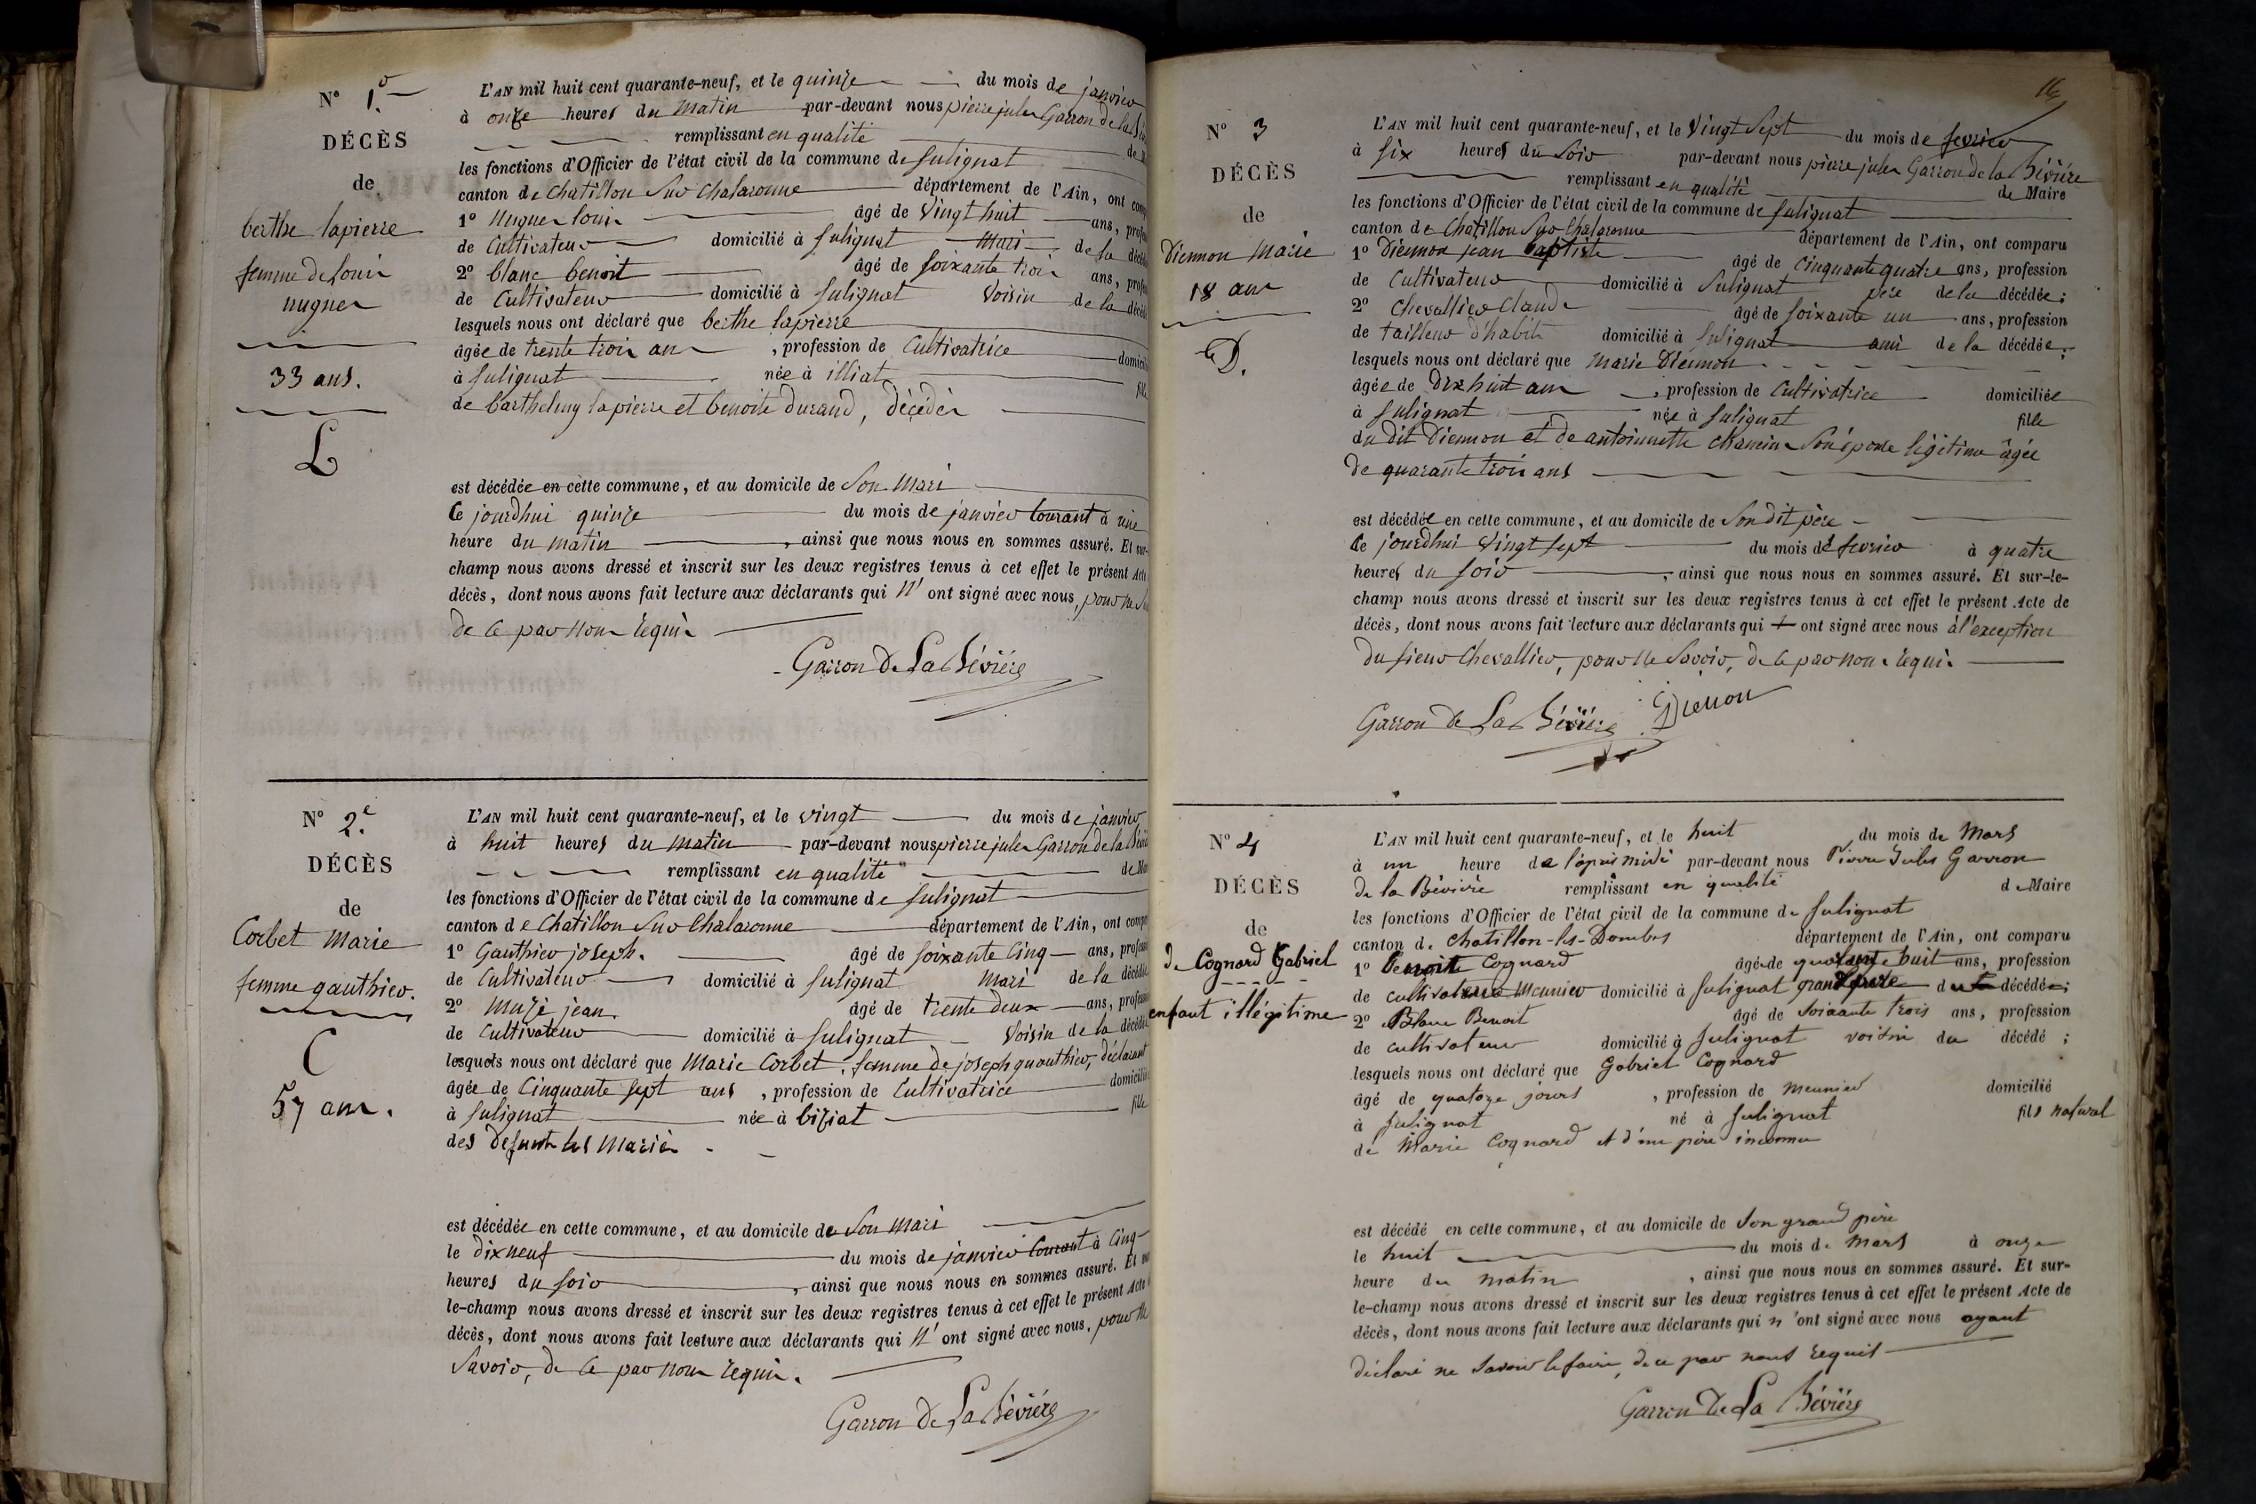 N° 1.er
DÉCÈS
de
berthe lapierre
femme de louis
nugues
33 ans.
L
L'AN mil huit cent quarante-neuf, et le quinze du mois de janvier
à onze heures du matin par-devant nous pierre jules Garron de la
remplissant en qualité de
les fonctions d'Officier de l'état civil de la commune de Sulignat
canton de Chatillon Sur Chalaronne département de l'Ain, ont
1° Nugues louis âgé de Vingt huit ans,
de Cultivateur domicilié à Sulignat Mari de la
2° blanc benoit âgé de soixante trois ans,
de Cultivateur domicilié à Sulignat Voisin de la
lesquels nous ont déclaré que berthe lapierre
âgée de trente trois ans , profession de Cultivatrice
à Sulignat née à illiat
de barthelmy lapierre et benoite durand, décédés
est décédée en cette commune, et au domicile de Son Mari
Ce jourdhui quinze du mois de janvier Courant à une
heure du matin , ainsi que nous nous en sommes assuré. Et sur-
champ nous avons dressé et inscrit sur les deux registres tenus à cet effet le présent Acte
décès, dont nous avons fait lecture aux déclarants qui N' ont signé avec nous, pour ne
de ce par Nous requis
Garron De La Bévière
N° 2.e
DÉCÈS
de
Corbet Marie
femme gauthier.
C
57 ans.
L'AN mil huit cent quarante-neuf, et le vingt du mois de janvier
à huit heures du matin par-devant nous pierre jules Garron de la
remplissant en qualité de
les fonctions d'Officier de l'état civil de la commune de Sulignat
canton de Chatillon Sur Chalaronne département de l'Ain, ont
1° Gauthier joseph. âgé de soixante Cinq ans,
de Cultivateur domicilié à Sulignat Mari de la
2° Muzi jean âgé de trente deux ans,
de Cultivateur domicilié à Sulignat Voisin de la
lesquels nous ont déclaré que Marie Corbet, femme de joseph guauthier, déclarant
âgée de Cinquante sept ans , profession de Cultivatrice
à Sulignat née à biziat fille
des defunts les Mariés
est décédée en cette commune, et au domicile de Son Mari
le dix neuf du mois de janvier Courant à Cinq
heures du soir , ainsi que nous nous en sommes assuré. Et
le-champ nous avons dressé et inscrit sur les deux registres tenus à cet effet le présent Acte
décès, dont nous avons fait lecture aux déclarants qui N' ont signé avec nous, pour ne
Savoir, de ce par Nous requis.
Garron De La Bévière
16
N° 3
DÉCÈS
de
Diennon Marie
18 ans
D.
L'AN mil huit cent quarante-neuf, et le Vingt Sept du mois de fevrier
à six heures du Soir par-devant nous pierre jules Garron de la Bévière
remplissant en qualité de Maire
les fonctions d'Officier de l'état civil de la commune de Sulignat
canton de Chatillon Sur Chalaronne département de l'Ain, ont comparu
1° Diennon jean baptiste âgé de Cinquante quatre ans, profession
de Cultivateur domicilié à Sulignat père de la décédée;
2° Chevallier Claude âgé de soixante un ans, profession
de tailleur d'habits domicilié à Sulignat ami de la décédée;
lesquels nous ont déclaré que Marie Diennon
âgée de Dix huit ans , profession de Cultivatrice domiciliée
à Sulignat née à Sulignat fille
du dit Diennon et de antoinette Son épouse légitime âgée
de quarante trois ans
est décédée en cette commune, et au domicile de Son dit père
Ce jourdhui Vingt sept du mois de fevrier à quatre
heures du soir , ainsi que nous nous en sommes assuré. Et sur-le-
champ nous avons dressé et inscrit sur les deux registres tenus à cet effet le présent Acte de
décès, dont nous avons fait lecture aux déclarants qui ont signé avec nous à l'exception
du sieur Chevallier, pour ne Savoir, de ce par nous requis.
Garron De La Bévière Diennon
N° 4
DÉCÈS
de
de Cognard Gabriel
enfant illégitime
L'AN mil huit cent quarante-neuf, et le huit du mois de Mars
à un heure de l'après midi par-devant nous Pierre Jules Garron
de la Bévière remplissant en qualité de Maire
les fonctions d'Officier de l'état civil de la commune de Sulignat
canton de Chatillon-les-Dombes département de l'Ain, ont comparu
1° Benoite Cognard âgé de quarante huit ans, profession
de cultivateur Meunier domicilié à Sulignat grand père du décédé;
2° Blanc Benoit âgé de soixante trois ans, profession
de cultivateur domicilié à Sulignat voisin du décédé ;
lesquels nous ont déclaré que Gabriel Cognard
âgé de quatorze jours , profession de meunier domicilié
à Sulignat né à Sulignat fils naturel
de Marie Cognard et d'un père inconnu
est décédé en cette commune, et au domicile de Son grand père
le huit du mois de Mars à onze
heure du matin , ainsi que nous nous en sommes assuré. Et sur-
le-champ nous avons dressé et inscrit sur les deux registres tenus à cet effet le présent Acte de
décès, dont nous avons fait lecture aux déclarants qui n'ont signé avec nous ayant
déclaré ne savoir le faire, de ce par nous requis
Garron De La Bévière